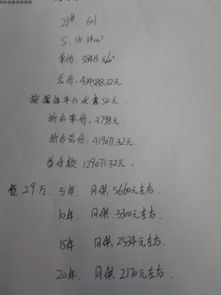 21# 601
S: 110.34m²
单价: 3848元/m²
总价: 424588.32元
按揭每平方优惠50元
折后单价: 3798元
折后总价: 419071.32元
首付款 129071.32元
贷29万. 5年 月供5660元左右
10年 月供3300元左右
15年 月供2534元左右
20年 月供2170元左右